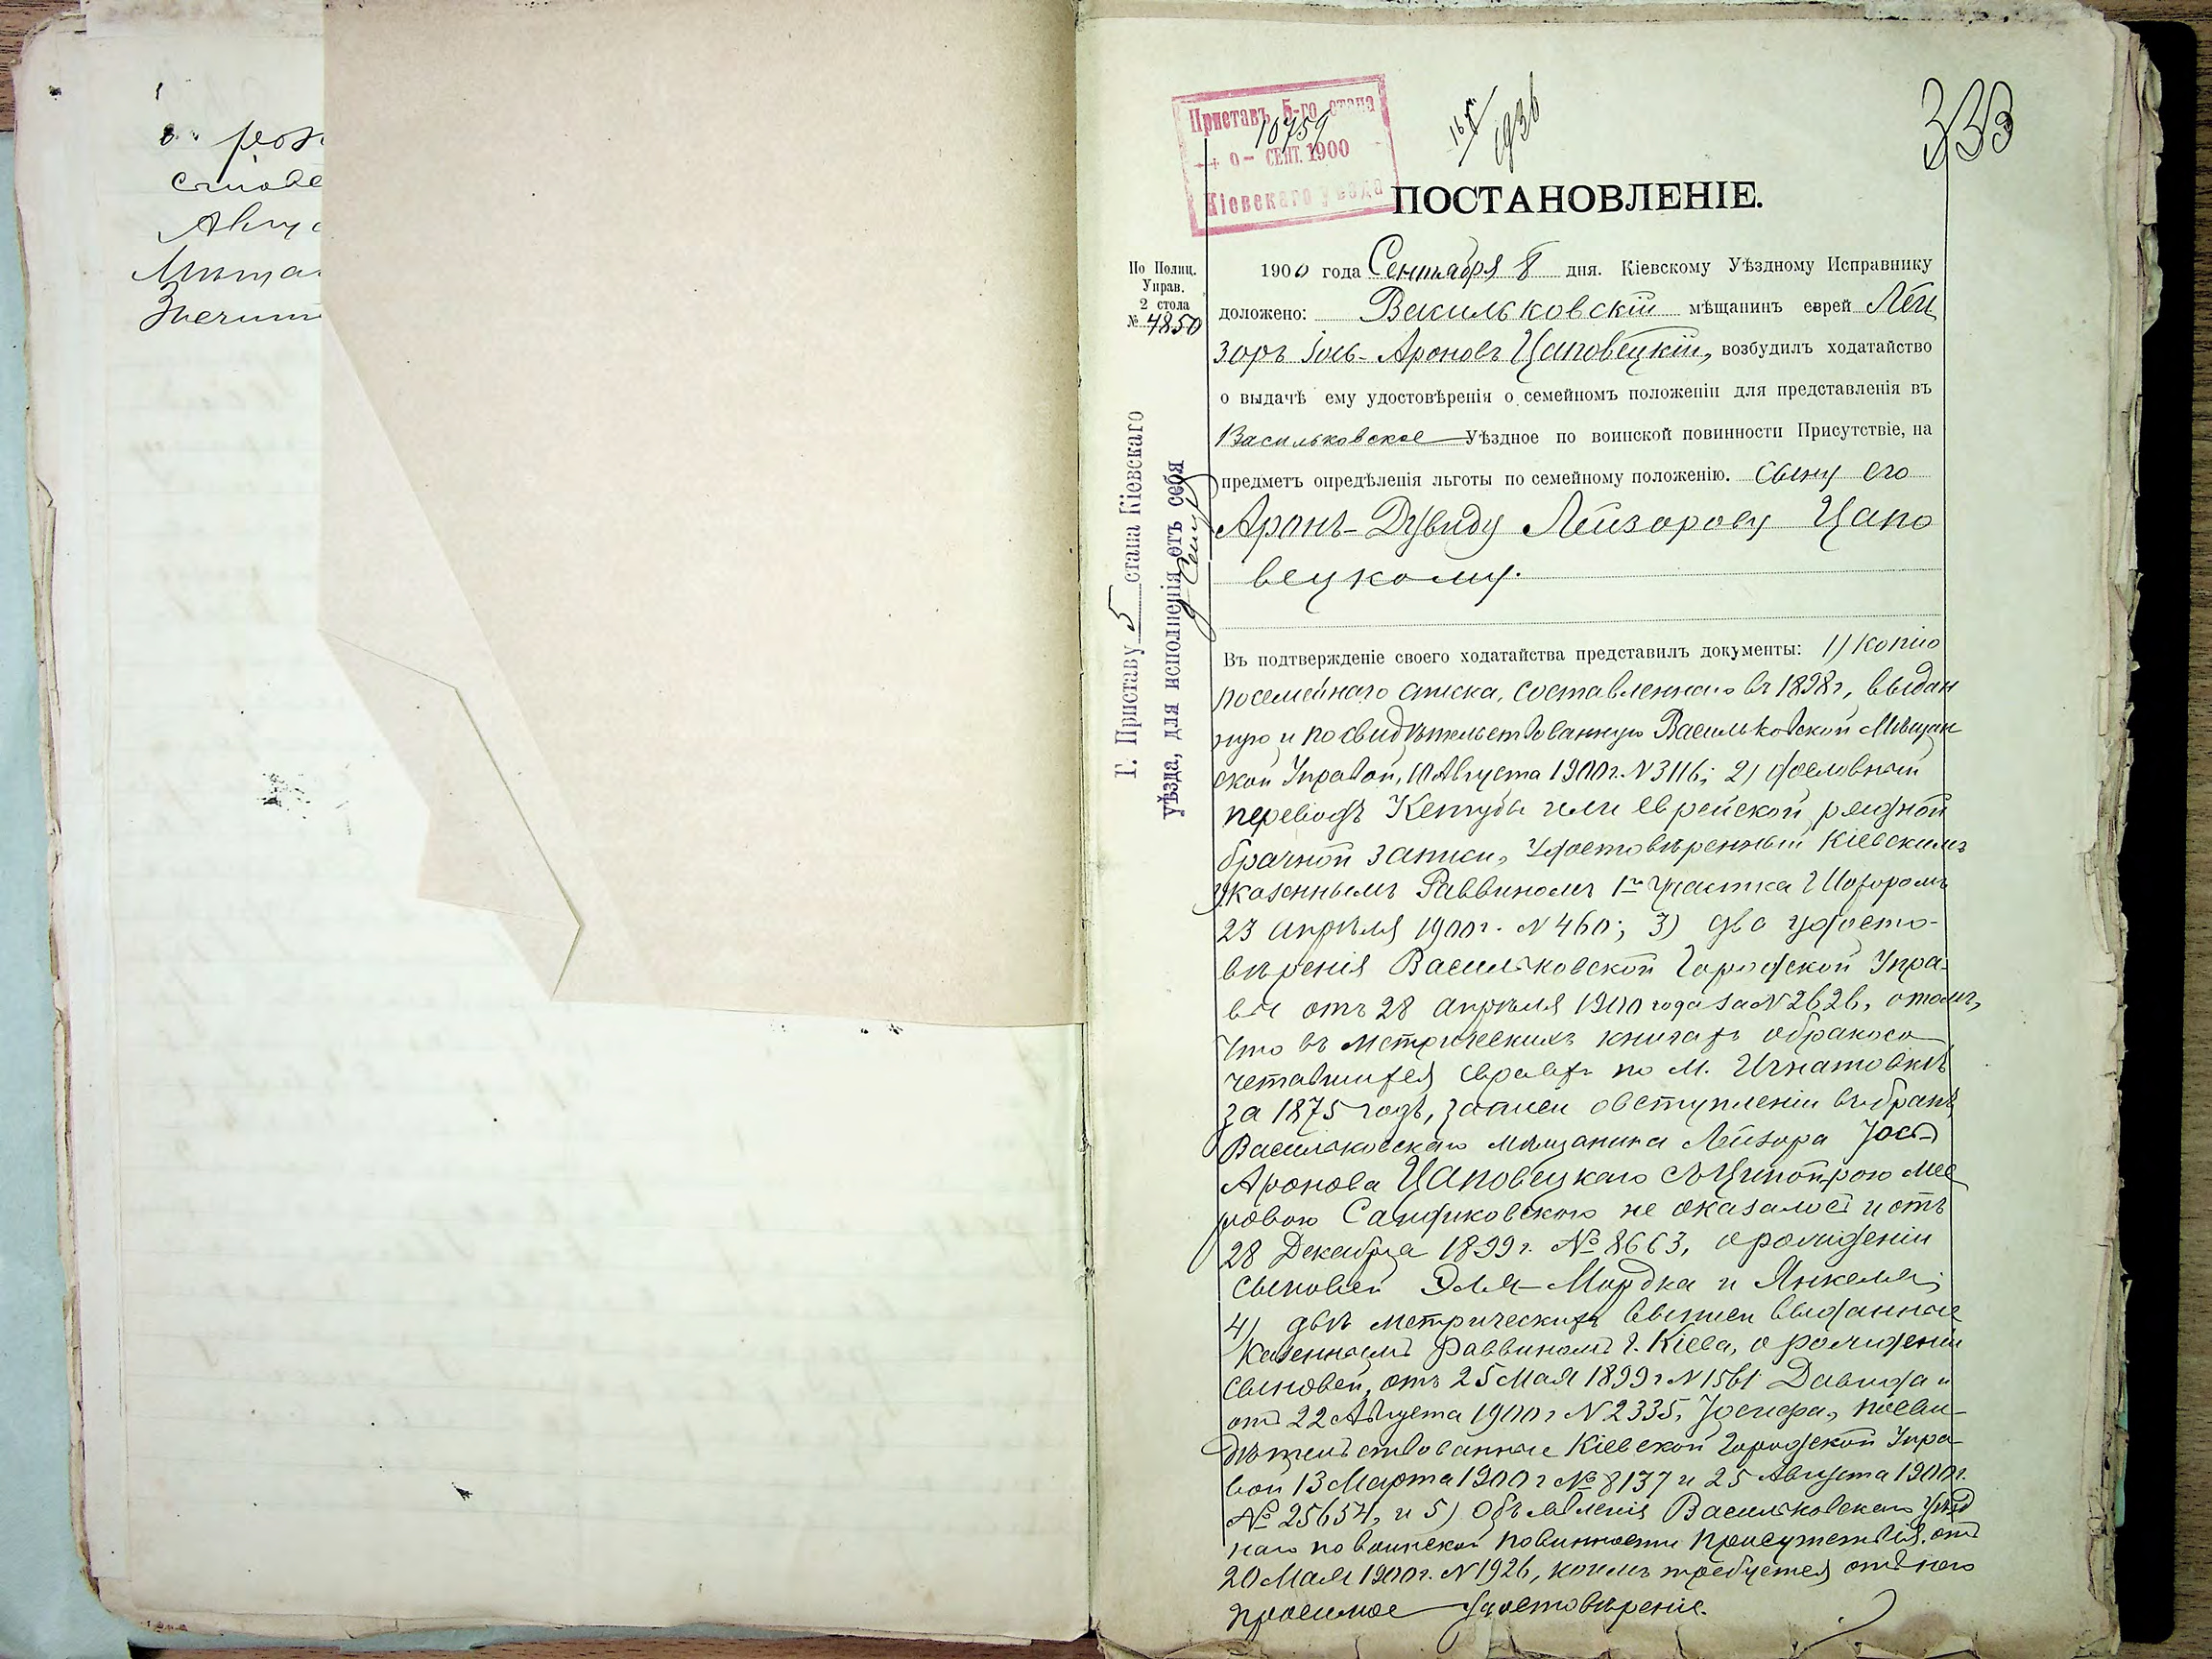 рож
Мѣща
333
Приставъ 5-го стана
10759
СЕНТ. 1900
Кіевскаго уѣзда
1926
ПОСТАНОВЛЕНІЕ.
По Полиц.
Управ.
2 стола
№ 4850
Г. Приставу 5 стана Кіевскаго
уѣзда, для исполненія отъ себя
1900 года Сентября 8 дня. Кіевскому Уѣздному Исправнику
доложено: Васильковскій мѣщанинъ еврей Лей
зоръ Іось-Ароновъ Цаповецкій, возбудилъ ходатайство
о выдачѣ ему удостовѣренія о семейномъ положеніи для представленія въ
Васильковское Уѣздное по воинской повинности Присутствіе, на
предметъ опредѣленія льготы по семейному положенію. сыну его
Аронъ-Дувиду Лейзорову Цапо
вецкому.
Въ подтвержденіе своего ходатайства представилъ документы: 1) копію
посемейнаго списка, составленнаго въ 1898 г, выдан
ную и посвидѣтельствованную Васильковской Мѣщан
ской Управой, 10 Августа 1900 г. N 3116; 2) дословный
переводъ Кетубы или еврейской рядной
брачной записи, удостовѣренный Кіевскимъ
Казеннымъ Раввиномъ 1го участка
23 апрѣля 1900 г. N 460; 3) два удосто-
вѣренія Васильковской Городской Упра-
вы отъ 28 апрѣля 1900 года за N 2626, отомъ,
что въ метрическихъ книгахъ обракосо
четавшихся евреяхъ по м. Игнатовкѣ
за 1875 годъ, записи овступленіи въ бракъ
Васильковскаго мѣщанина Лейзора Іось-
Аронова Цаповецкаго съ Ципойрою Мее
ровою не оказалось и отъ
28 Декабря 1899 г. № 8663, о рожденіи
сыновей Эля-Мордка и Янкеля;
4) двѣ метрическихъ выписи выданные
Казеннымъ Раввиномъ г. Кіева, о рожденіи
сыновей, отъ 25 Мая 1899 г N 1561 Давида и
отъ 22 Августа 1900 г N 2335, Іосифа, посви-
дѣтельствованные Кіевской Городской Упра-
вой 13 Марта 1900 г № 8137 и 25 Августа 1900 г.
№ 25654, и 5) Объявленія Васильковскаго Уѣзд
наго по воинской повинности присутствія, отъ
20 Мая 1900 г. N 1926, коимъ требуется отъ него
просимое удостовѣреніе.